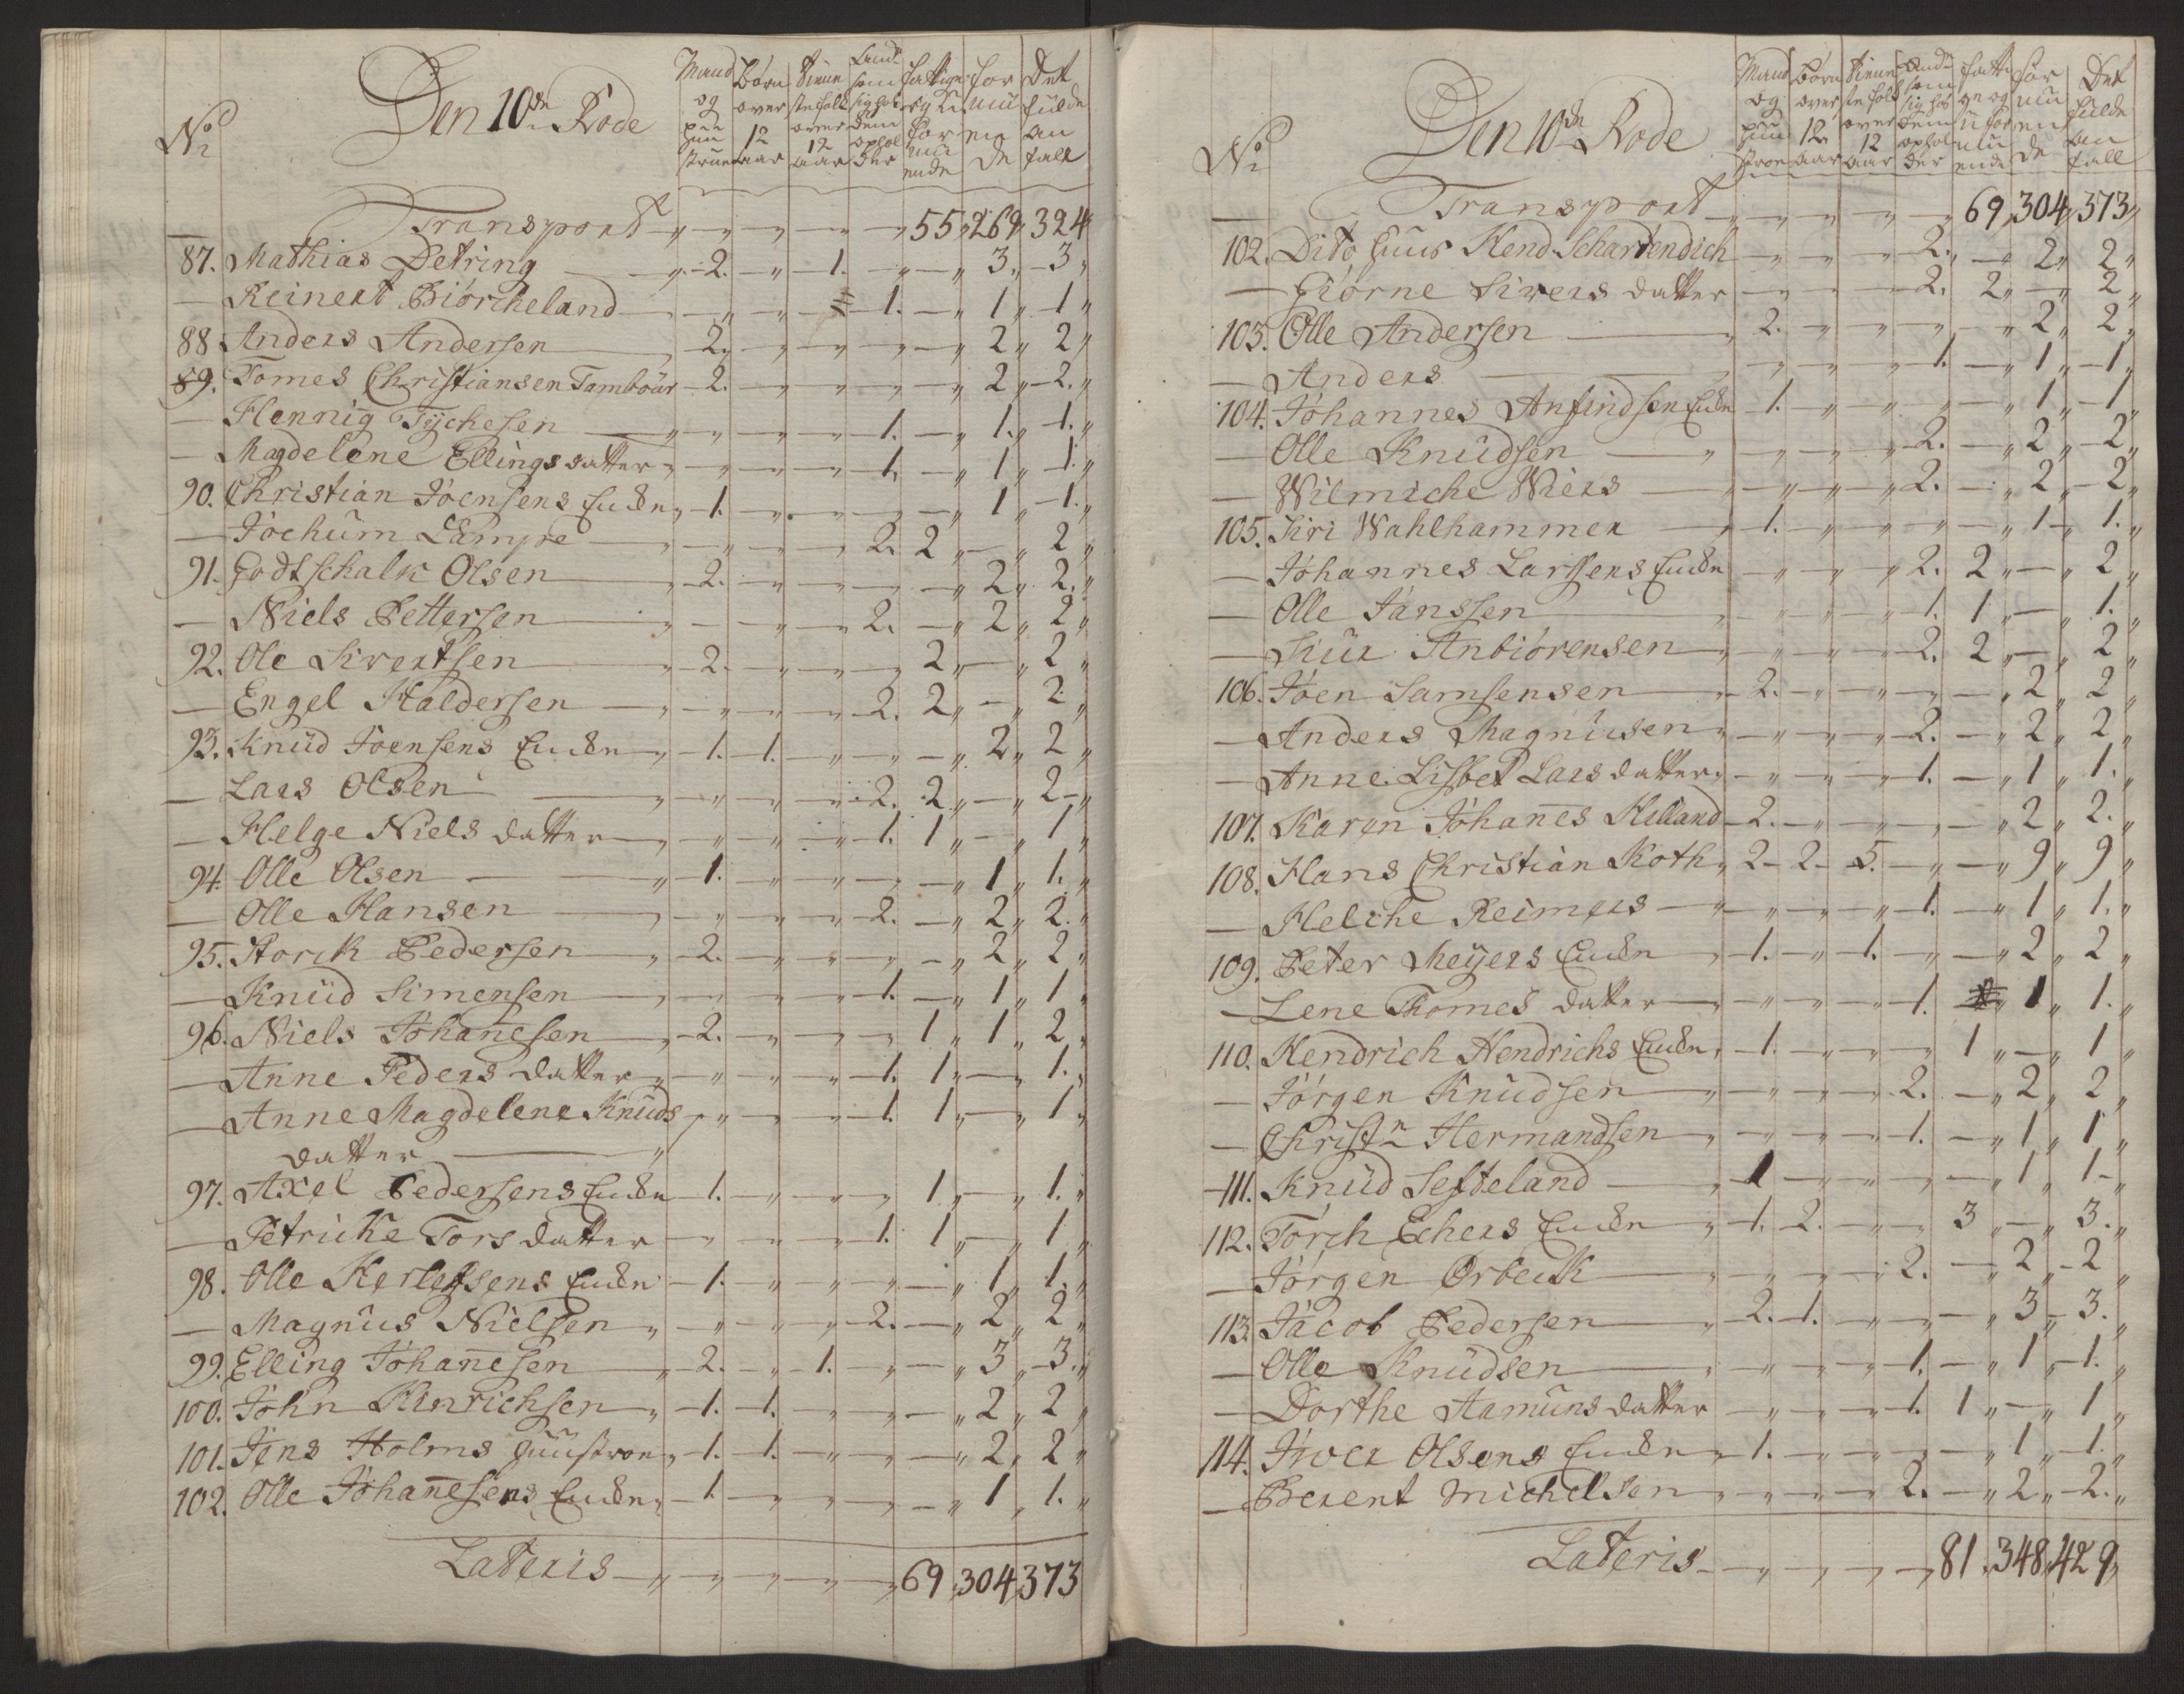 No
Den 10de Rode
Mand og huustruer
Børn over 12 aar
tienne ste folk over 12 aar
som sig hos dem ophol der
fattige og u for mu ende
For mu en de
Det fulde an tall
Transport 55 269 324
87. Mathias Detring 2. 1. 3 3
Reinert Biörcheland 1. 1 1
88 Anders Andersen 2 2 2
89. Tomes Christiansen Tamboúr 2. 2 2.
Hennig Tÿchesen 1. 1. 1.
Magdelene Ellings datter 1. 1 1.
90. Christian Joensens Encke 1. 1 1.
Jochum Lampe 2. 2 2
91. Godtschalk Olsen 2. 2 2.
Niels Pettersen 2. 2 2
92. Ole Sivertsen 2. 2 2
Engel Haldersen 2. 2 2
93. Knúd Joensens Encke 1. 1. 2 2
Lars Olsen 2. 2 2
Helge Niels datter 1. 1 1
94. Olle Olsen 1. 1 1.
Olle Hansen 2. 2 2.
95. Storck Pedersen 2. 2 2
Knúd Simensen 1. 1 1
96. Niels Johanesen 2. 1 1 2
Anne Peders datter 1. 1 1.
Anne Magdelene Knúds 1. 1 1
datter
97. Axel Pedersens Encke 1. 1 1.
Petriche Tors datter 1. 1 1
98. Olle Kerlefsens Encke 1. 1 1.
Magnús Nielsen 2. 2 2
99. Elling Johanesen 2. 1. 3 3.
100. John Hinrichsen 1. 1. 2 2
101. Jens Holms huustroe 1. 1. 2 2
102. Olle Johanesens Encke 1. 1 1.
Lateris 69 304 373
No
Den 10de Rode
Mand og huu stroe
Børn over 12 aar
tienne ste folk over 12 aar
som sig hos dem ophol der
fatti ge og u for mu ende
for mu en de
Det fulde an tall
Transport 69 304 373
102. Dito huus Hend Schartendich 2. 2 2
Giörne Sivers datter 2. 2 2
103. Olle Andersen 2. 2 2
Anders 1. 1 1
104. Johannes Anfindsen Encke 1. 1 1
Olle Knúdsen 2. 2 2
Wilmiche Wiers 2. 2 2
105. Siri Wahlhammer 1. 1 1.
Johannes Larsens Encke 2. 2 2
Olle Janssen 1. 1 1.
Siúr Anbiörensen 2. 2 2
106. Joen Samsensen 2. 2 2
Anders Magnúsen 2. 2 2
Anne Lisbet Lars datter 1. 1 1.
107. Karen Johanes Helland 2. 2 2.
108. Hans Christian Koth 2 2 5. 9 9
Helche Reimers 1. 1 1.
109. Peter Meÿers Encke 1. 1. 2 2
Lene Thomes datter 1. 1 1.
110. Hendrich Hendrichs Encke 1. 1 1
Jörgen Knúdsen 2. 2 2
Christn Hermandsen 1. 1 1
111. Knúd Sefteland 1 1 1
112. Torch Echers Encke 1. 2. 3 3.
Jörgen Orbeck 2. 2 2
113. Jacob Pedersen 2. 1. 3 3.
Olle Knúdsen 1. 1 1.
Dorthe Aamúns datter 1. 1 1
114. Jver Olsens Encke 1. 1 1.
Berent Michelsen 2. 2 2.
Lateris 81 348 429